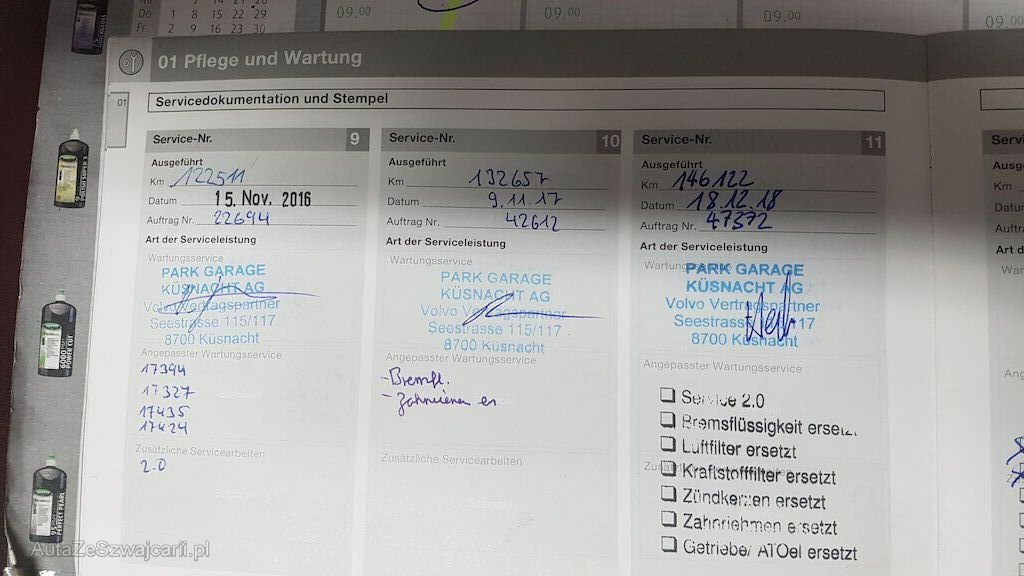 7 14 21 28
Do 1 8 15 22 29
Fr 2 9 16 23 30
09.00 09.00 09.00 09.00
01 Pflege und Wartung
01
Servicedokumentation und Stempel
Service-Nr. 9
Ausgeführt
Km 122511
Datum 15. Nov. 2016
Auftrag Nr. 22694
Art der Serviceleistung
Wartungsservice
PARK GARAGE
KÜSNACHT AG
Volvo Vertragspartner
Seestrasse 115/117
8700 Küsnacht
Angepasster Wartungsservice
17394
17327
17435
17424
Stempel
Zusätzliche Servicearbeiten
2.0
Stempel
Service-Nr. 10
Ausgeführt
Km 132657
Datum 9.11.17
Auftrag Nr. 42612
Art der Serviceleistung
Wartungsservice
PARK GARAGE
KÜSNACHT AG
Volvo Vertragspartner
Seestrasse 115/117
8700 Küsnacht
Angepasster Wartungsservice
- Bremfl.
- Zahnriemen er.
Zusätzliche Servicearbeiten
Service-Nr. 11
Ausgeführt
Km 146122
Datum 18.12.18
Auftrag Nr. 47372
Art der Serviceleistung
Wartungsservice
PARK GARAGE
KÜSNACHT AG
Volvo Vertragspartner
Seestrasse 115/117
8700 Küsnacht
Angepasster Wartungsservice
Service 2.0
Bremsflüssigkeit ersetzt
Luftfilter ersetzt
Kraftstofffilter ersetzt
Zündkerzen ersetzt
Zahnriehmen ersetzt
Getriebe/ ATOel ersetzt
AutaZeSzwajcarii.pl